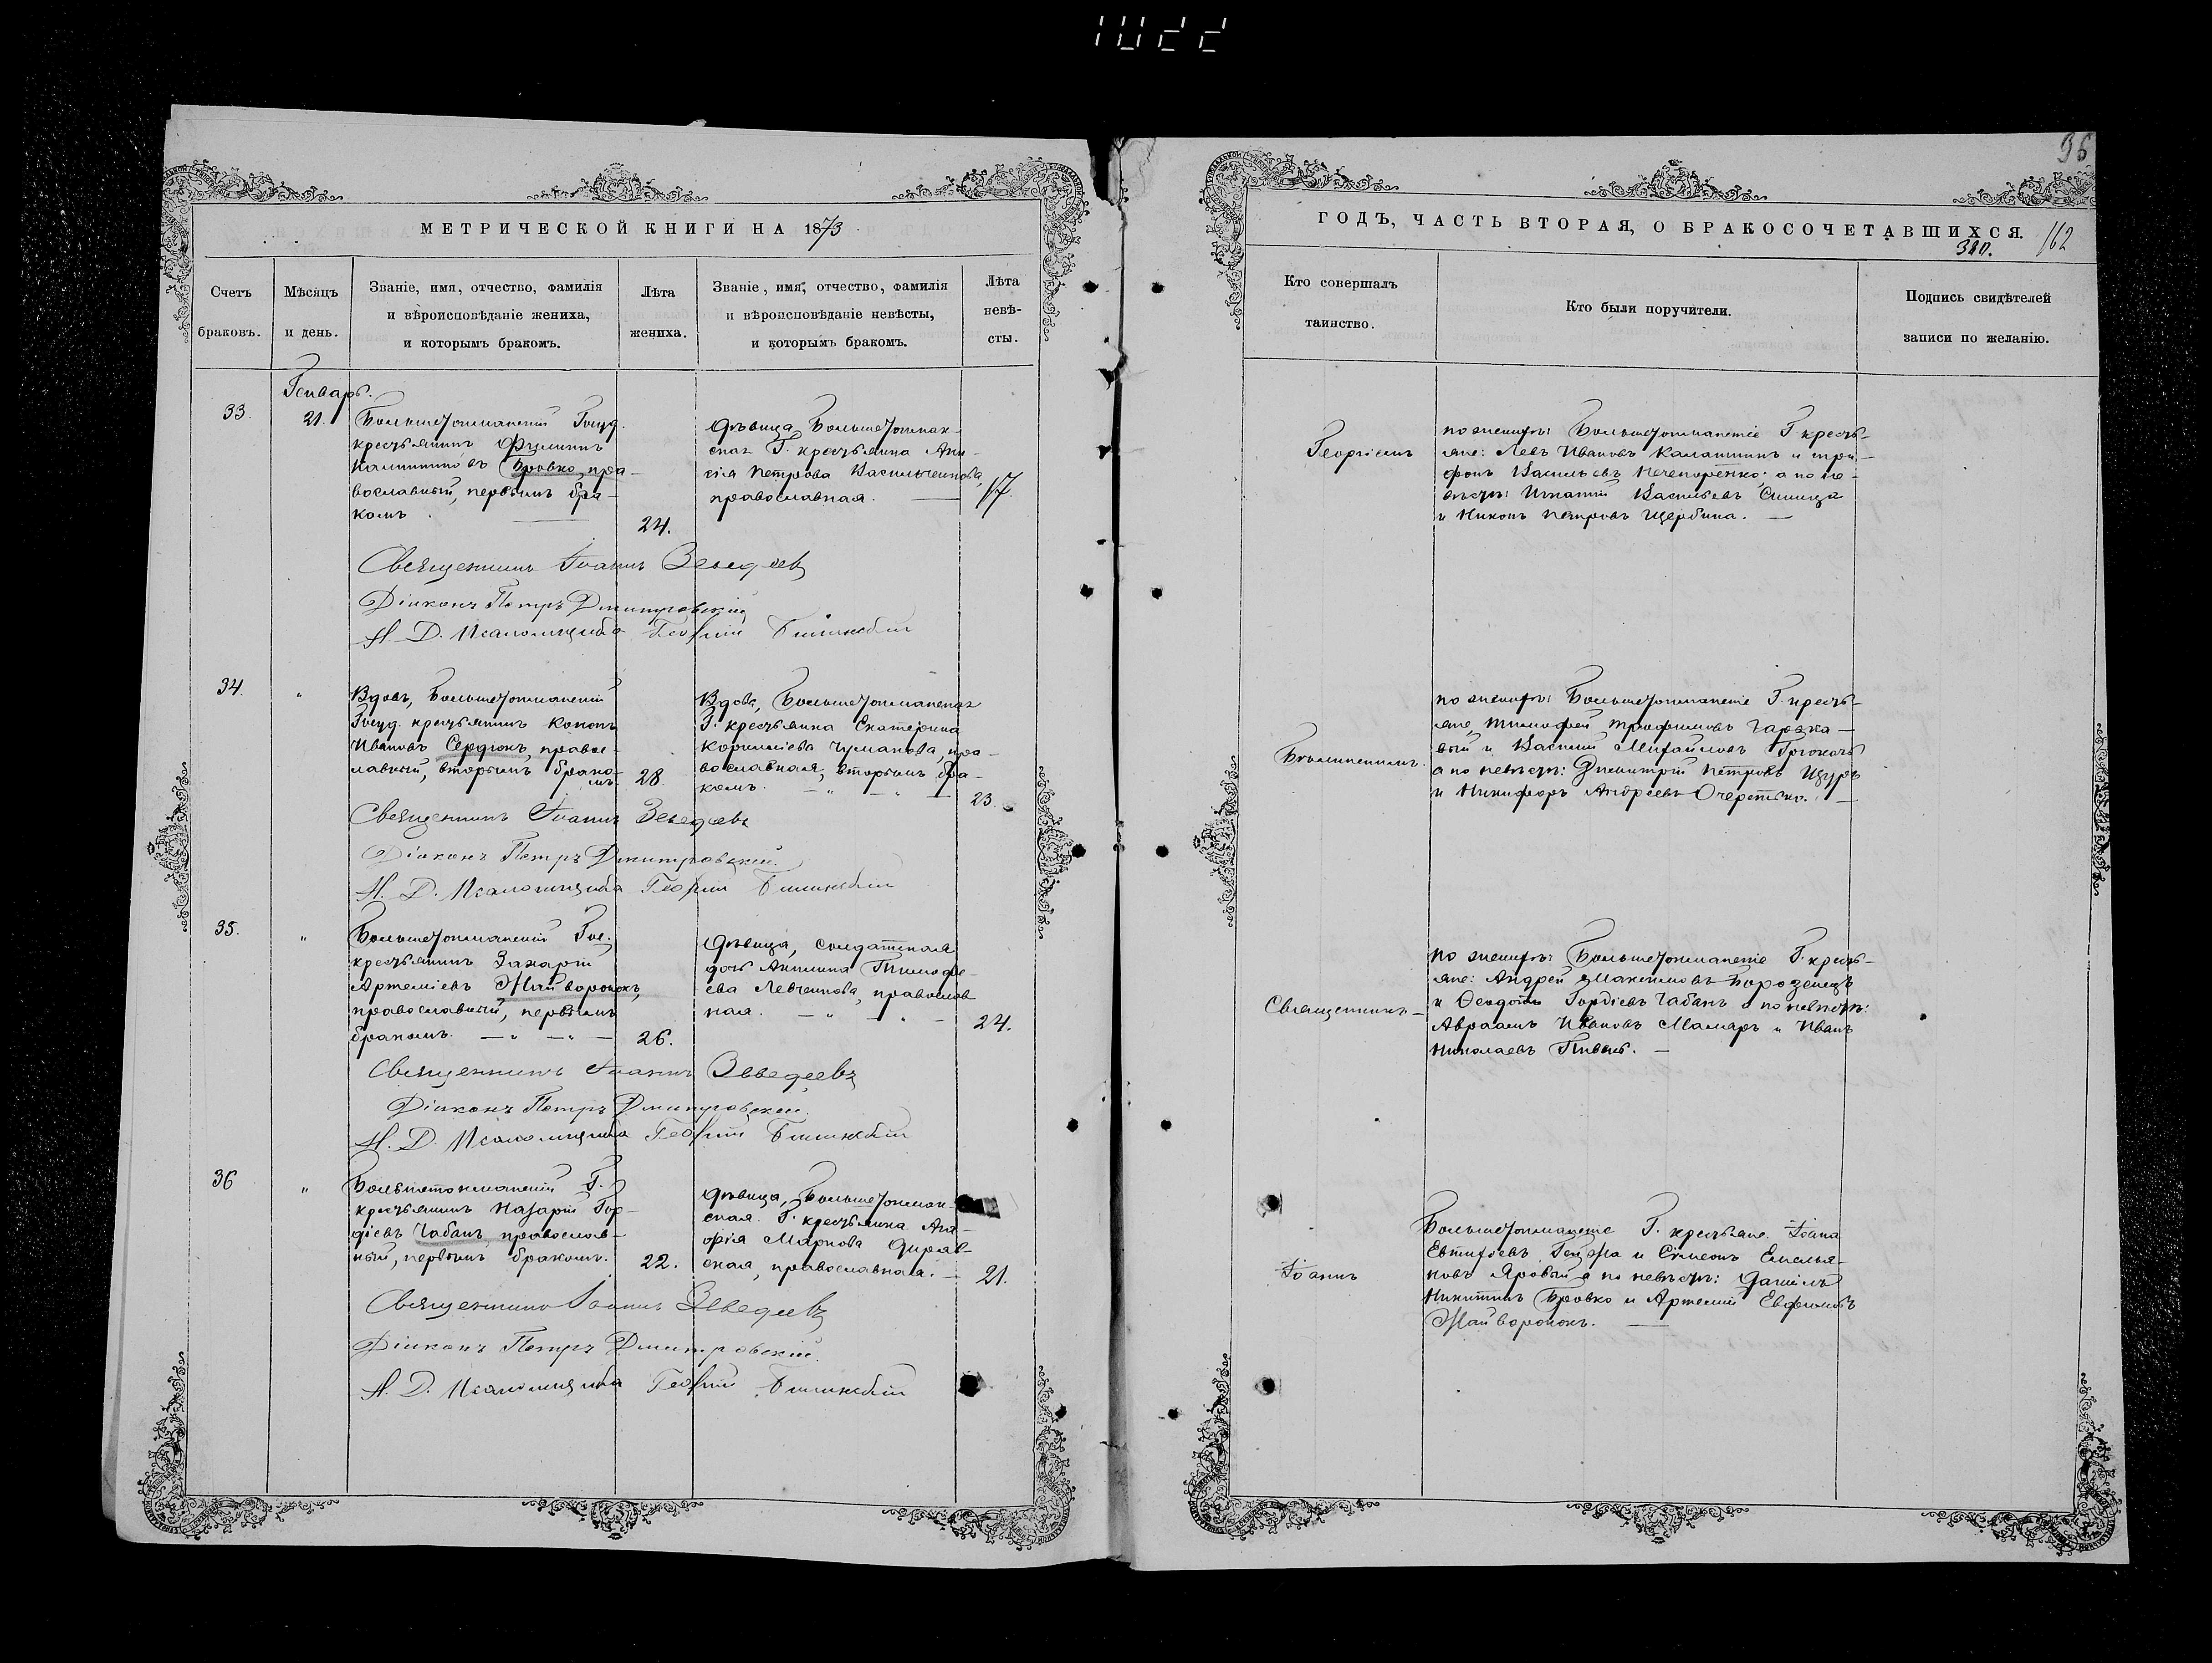 МЕТРИЧЕСКОЙ КНИГИ НА 1873
Счетъ браковъ.
Мѣсяцъ и день.
Званіе, имя, отчество, фамилія
и вѣроисповѣданіе жениха,
и которымъ бракомъ.
Лѣта
жениха.
Званіе, имя, отчество, фамилія
и вѣроисповѣданіе невѣсты,
и которымъ бракомъ.
Лѣта
невѣ-
сты.
Генварь.
33.
21.
Большетокмакскій Госуд.
крестьянинъ Филиппъ
Каллиниковъ Бровко, пра-
вославный, первымъ бра-
комъ
24.
Дѣвица Большетокмак-
ская Г. крестьянка Ани-
сія Петрова Васильченкова,
православная.
17.
Священникъ Іоаннъ Зеведеевъ
Діаконъ Петръ Дмитровскій
И. Д. Псаломщика Георгій
34.
"
Вдовъ, Большетокмакскій
Госуд. крестьянинъ Кононъ
Ивановъ Сердюкъ, право-
славный, вторымъ брако-
мъ.
28.
Вдова, Большетокмакская
Г. крестьянка Екатерина
Корниліева Чумакова, пра-
вославная, вторымъ бра-
комъ.
23.
Священникъ Іоаннъ Зеведеевъ
Діаконъ Петръ Дмитровскій.
И. Д. Псаломщика Георгій
35.
"
Большетокмакскій Гос.
крестьянинъ Захарій
Артеміевъ Жайворонокъ,
православный, первымъ
бракомъ.
26.
Дѣвица, солдатская
дочь Акилина Тимофе-
ева Левченкова, православ
ная.
24.
Священникъ Іоаннъ Зеведеевъ
Діаконъ Петръ Дмитровскій.
И. Д. Псаломщика Георгій
36
"
Большетокмакскій Г.
крестьянинъ Назарій Гор-
діевъ Чабанъ, православ-
ный, первымъ бракомъ.
22.
Дѣвица, Большетокмак-
ская Г. крестьянка Ага-
фія Маркова
православная.
21.
Священникъ Іоаннъ Зеведеевъ
Діаконъ Петръ Дмитровскій.
И. Д. Псаломщика Георгій
96
ГОДЪ, ЧАСТЬ ВТОРАЯ, О БРАКОСОЧЕТАВШИХСЯ.
162
Кто совершалъ
таинство.
Кто были поручители.
Подпись свидѣтелей
записи по желанію.
Георгіемъ
по женихѣ: Большетокмакскіе Г. кресть-
яне: Левъ Ивановъ Калашникъ и Три-
фонъ Васильевъ Нечепоренко; а по не-
вѣстѣ: Игнатій Васильевъ Синица
и Никонъ Петровъ Щербина.
по женихѣ: Большетокмакскіе Г. кресть-
яне, Тимофей Трофимовъ Гарька-
вый и Василій Михайловъ
а по невѣстѣ: Димитрій Петровъ Щуръ
и Никифоръ Андреевъ Очеретько.
Священникъ
по женихѣ: Большетокмакскіе Г. кресть-
яне: Андрей Максимовъ Бородецъ
и Ѳеодотъ Гордіевъ Чабанъ а по невѣстѣ:
Авраамъ Ивановъ Маляръ и Иванъ
Николаевъ
Іоаннъ
Большетокмакскіе Г. крестьяне. Іоаннъ
и Сѵмеонъ Емелья-
новъ Яровый а по невѣстѣ: Даніилъ
Никитинъ Бровко и Артемій Евфимовъ
Жайворонокъ.